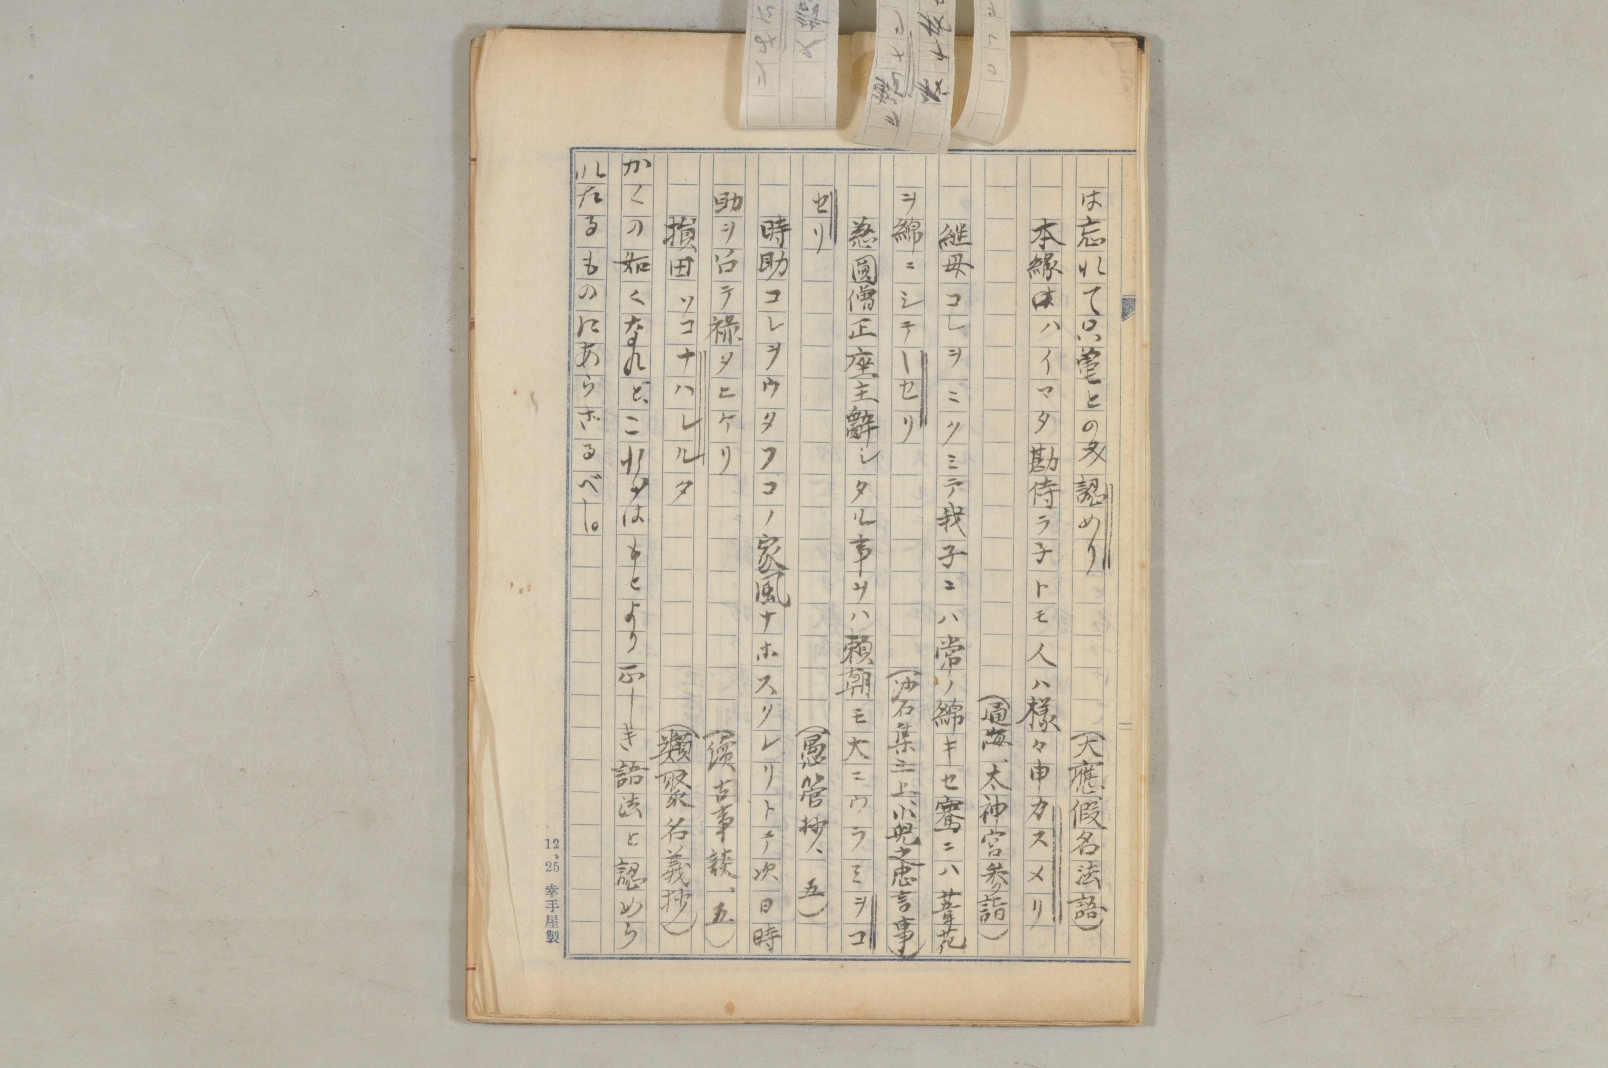 は忘れて只竃との文認めり
(大應假名法語)
本縁ハイマタ勘侍ラ子トモ人ハ様々申カスメリ
(通海、太神宮参詣)
継母コレヲミクミテ我子ニハ常ノ綿キセ騫ニハ葦花
ヲ綿ニシテーセリ
(沙石集三上、小児之忠言事)
慈圓僧正座主辭シタル事ヲハ頼朝モ大ニウラミヲコ
セリ
(愚管抄、五)
時助コレヲウタフコノ家風ナホスリレリトテ次日時
助ヲ召テ禄タヒケリ
(續古事談、五)
損田ソコナハレルタ
(類聚名義抄)
かくの如くなれど、これはもとより正しき語法と認めら
れたるものにあらざるべし。
12、25 幸手屋製